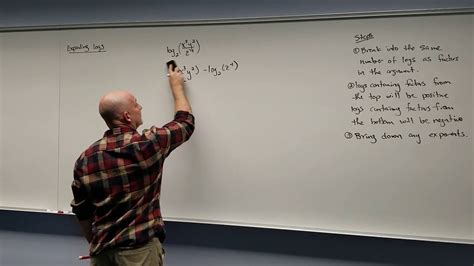 Expanding logs
log₂(x³y²/z⁴)
x³y²) - log₂(z⁴)
Steps
① Break into the same
number of logs as factors
in the argument.
② logs containing factors from
the top will be positive
logs containing factors from
the bottom will be negative
③ Bring down any exponents.